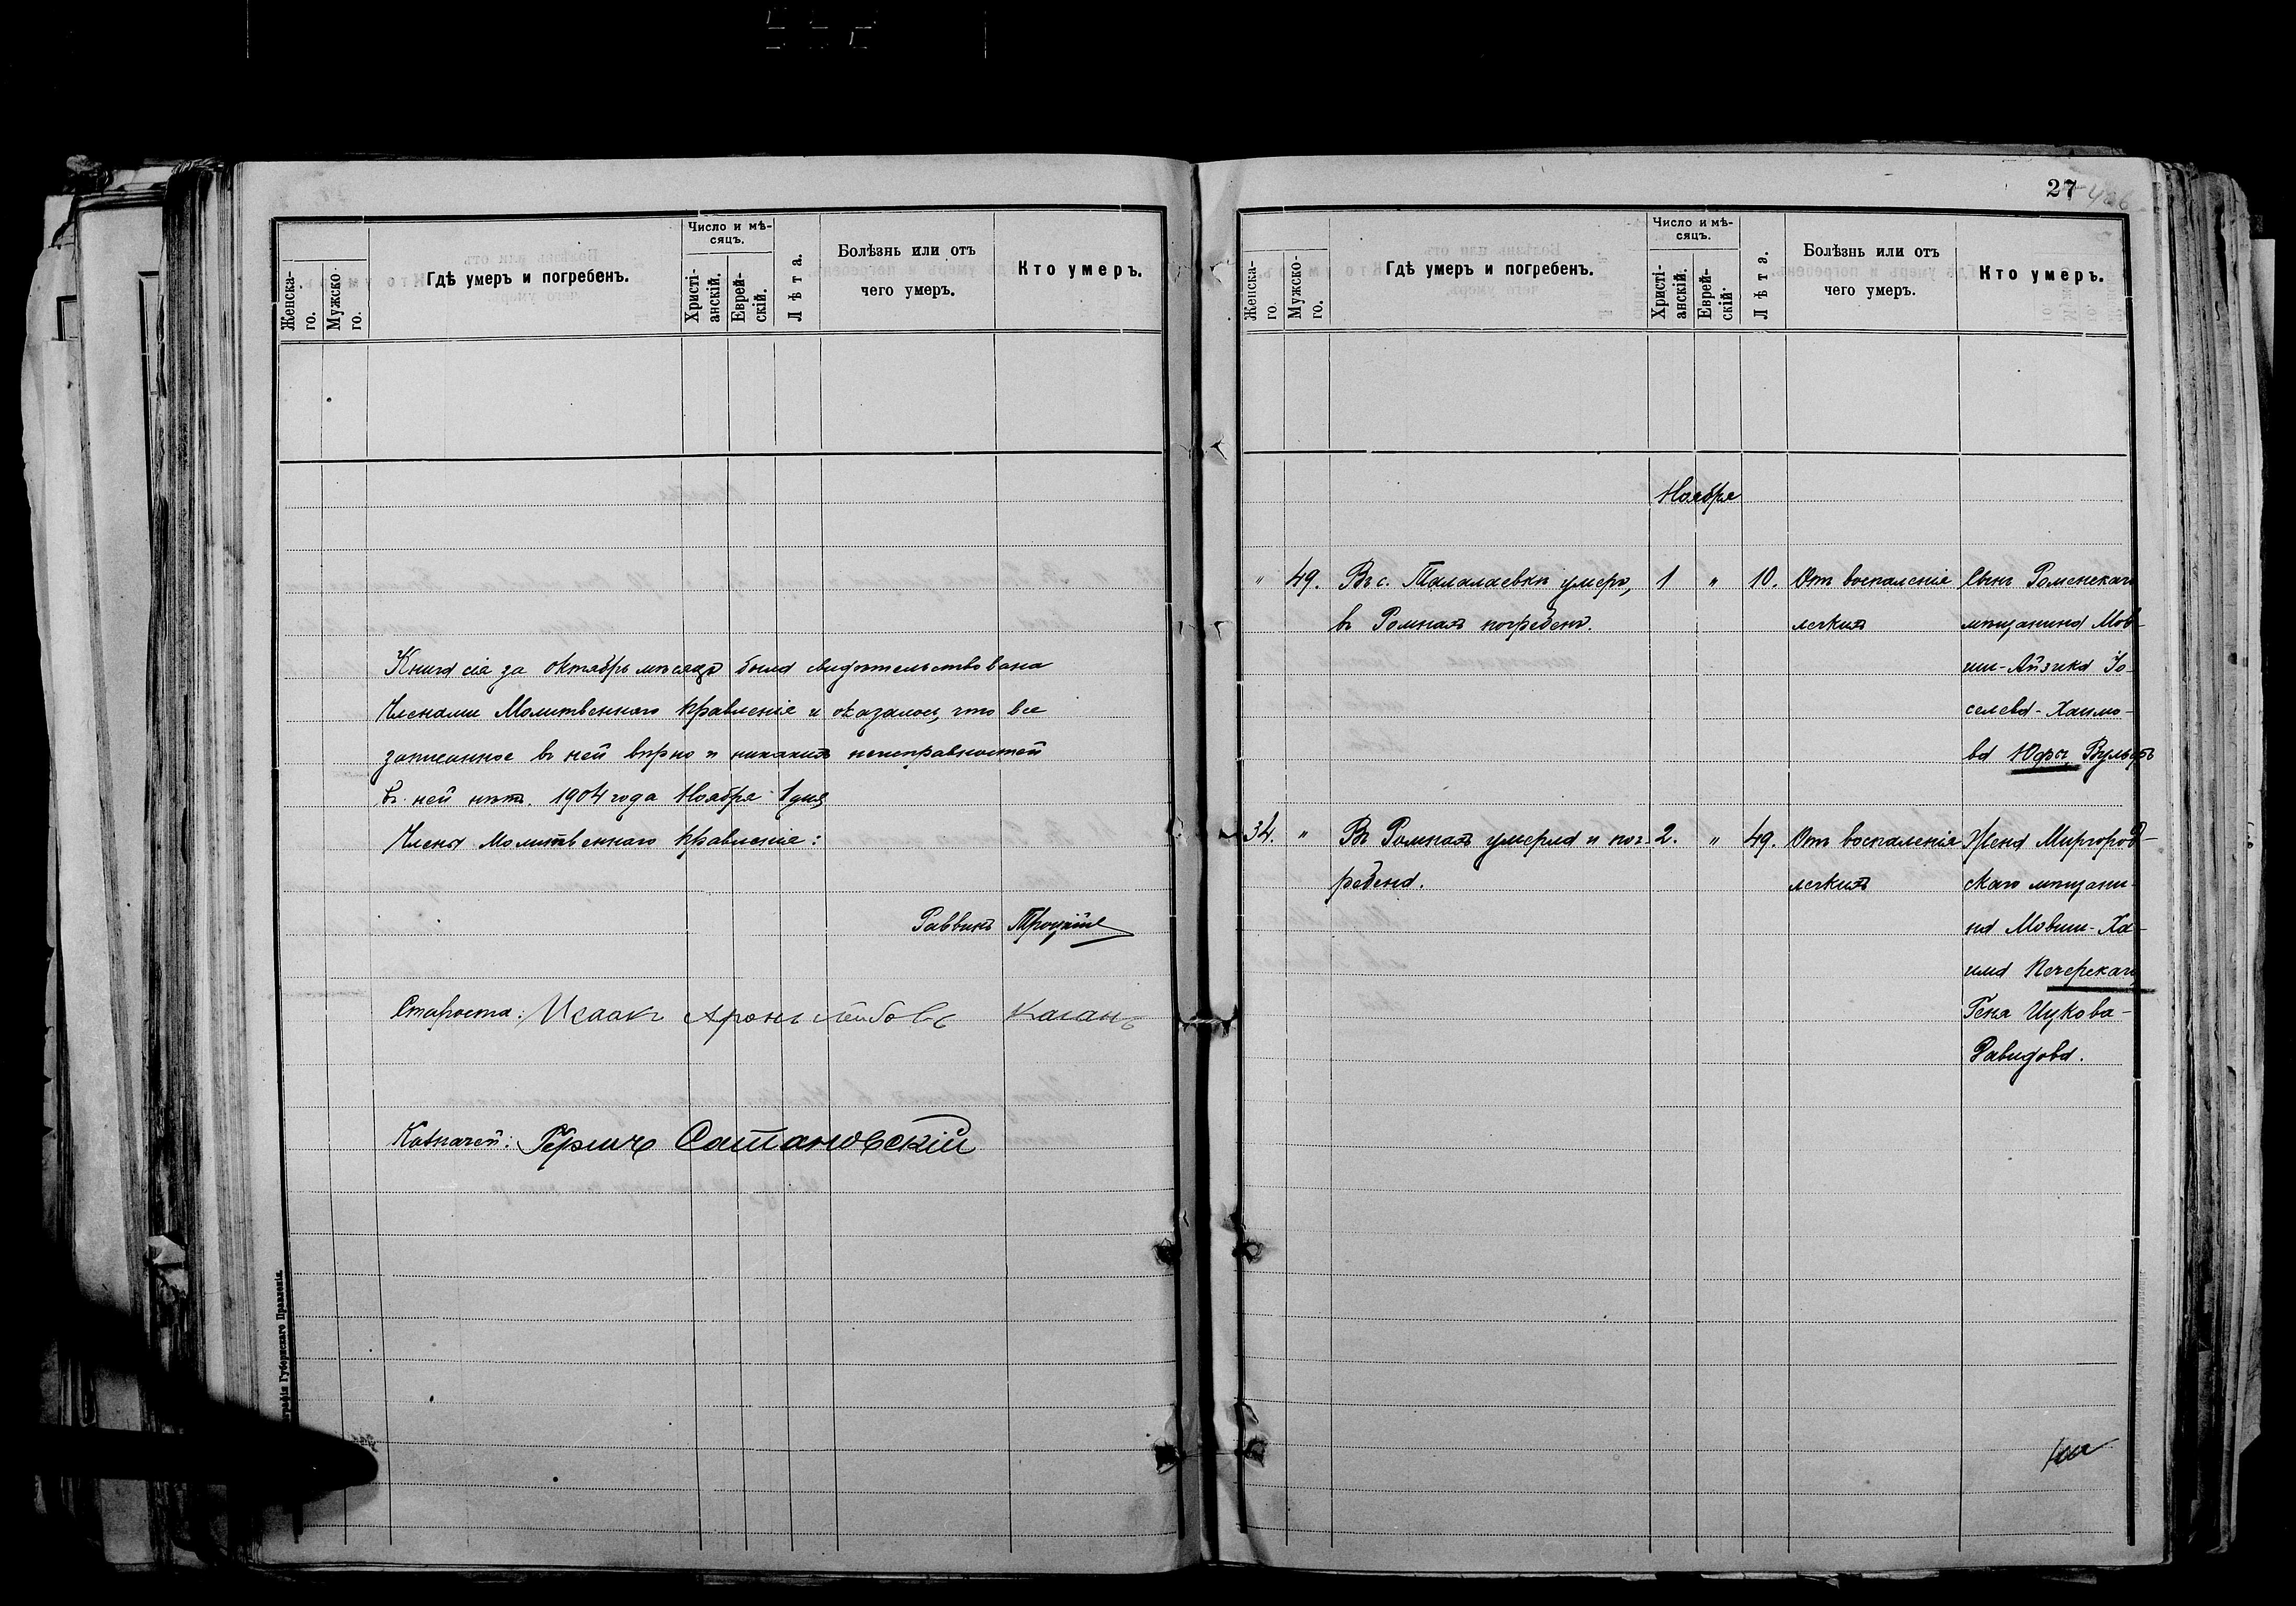 Женска-
го.
Мужско-
го.
Гдѣ умеръ и погребенъ.
Число и мѣ-
сяцъ.
Христі-
анскій.
Еврей-
скій.
Лѣта.
Болѣзнь или отъ
чего умеръ.
Кто умеръ.
Книга сія за октябрь мѣсяцъ была свидѣтельствована
Членами Молитвеннаго Правленія и оказалось, что все
записанное въ ней вѣрно и никакихъ неисправностей
въ ней нѣтъ. 1904 года Ноября 1 дня
Члены Молитвеннаго Правленія:
Раввинъ
Староста: Исаакъ Аронъ Лейбовъ Каганъ
Казначей: Гершъ Сатановскій
Губернскаго Правленія.
27
Женска-
го.
Мужско-
го.
Гдѣ умеръ и погребенъ.
Число и мѣ-
сяцъ.
Христі-
анскій.
Еврей-
скій.
Лѣта.
Болѣзнь или отъ
чего умеръ.
Кто умеръ.
Ноября
" 49. Въ с. Талалаевкѣ умеръ, 1 " 10. Отъ воспаленія Сынъ Роменскаго
въ Ромнахъ погребенъ. легкихъ мѣщанина Мов-
ши-Айзика Іо-
селева-Хаимо-
ва Юфы, Вульфъ
34. " Въ Ромнахъ умерла и пог- 2. " 49. Отъ воспаленія Жена Миргород-
ребена. легкихъ скаго мѣщани-
на Мовши-Ха-
има Печерскаго
Геня Ицкова-
Давидова.